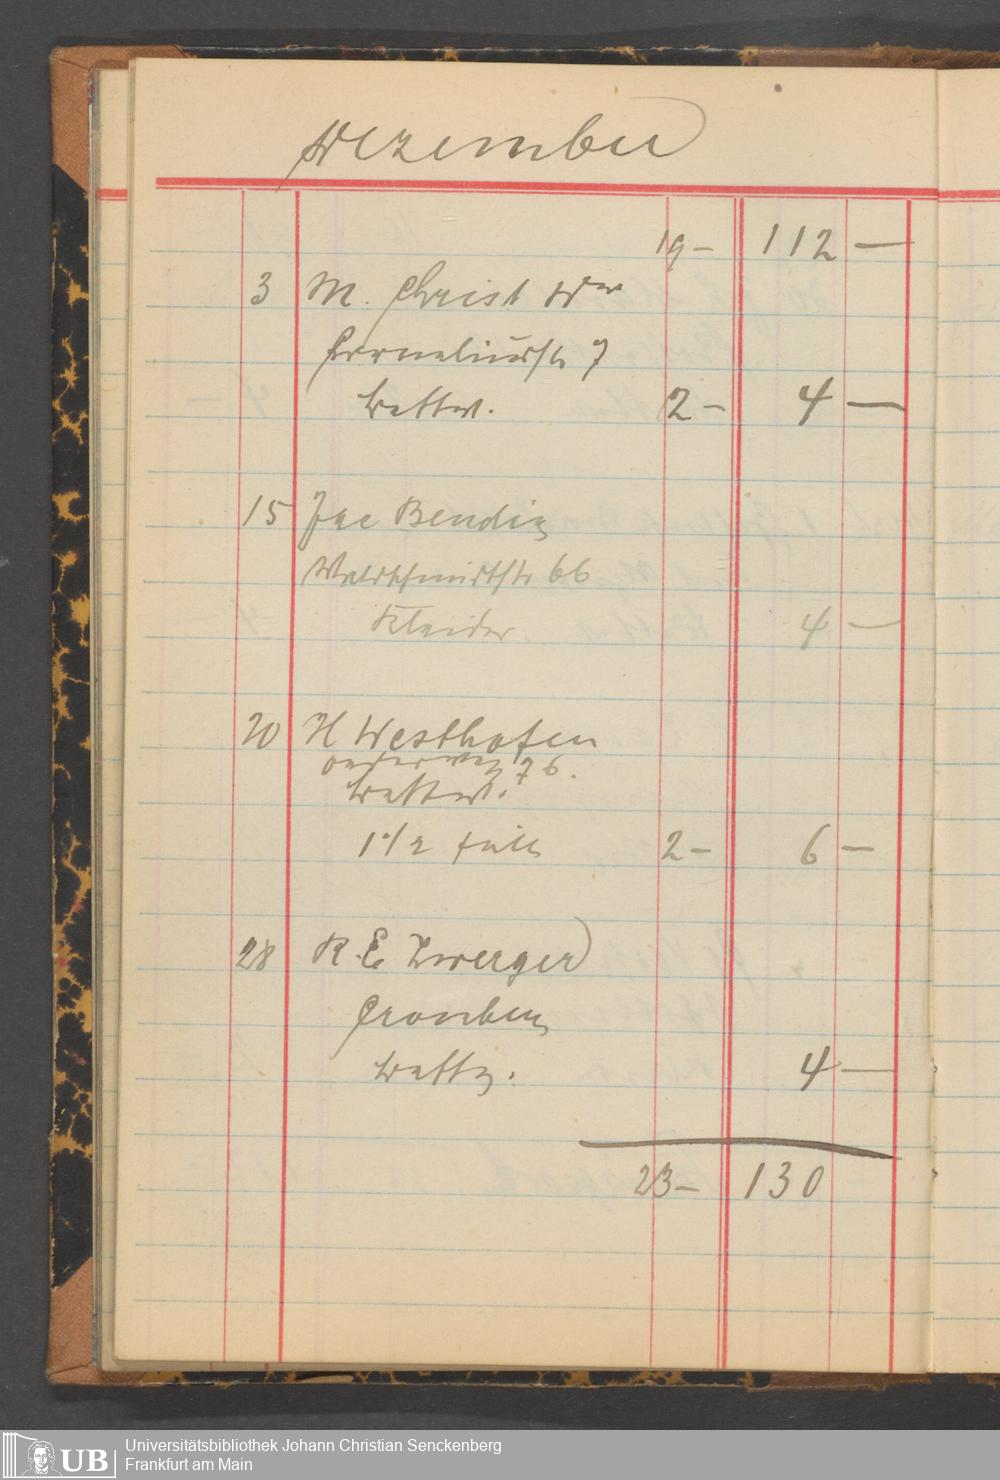 Dezember
19 – 112 —
3 M. Christ Wwe
Corneliusstr 7
Bettw. 2 – 4 —
15 Jac Bendig
Waldschmidtstr 66
Kleider 4 —
20 H Westhofen
76.
Bettw.
1 1/2 2 – 6 —
28 R. E. Zwerger
Cronberg
4 —
23 – 130
UB
Universitätsbibliothek Johann Christian Senckenberg
Frankfurt am Main